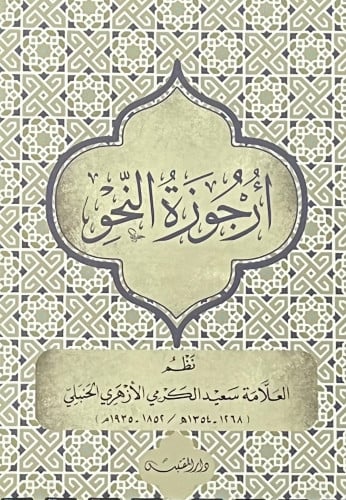 أُرْجُوزَةُ النَّحْوِ
نَظْمُ
العلَّامة سَعيْد الكَرْمي الأزهَري الحَنبَليّ
(١٢٦٨-١٣٥٤هـ / ١٨٥٢-١٩٣٥م)
دار المقتبس